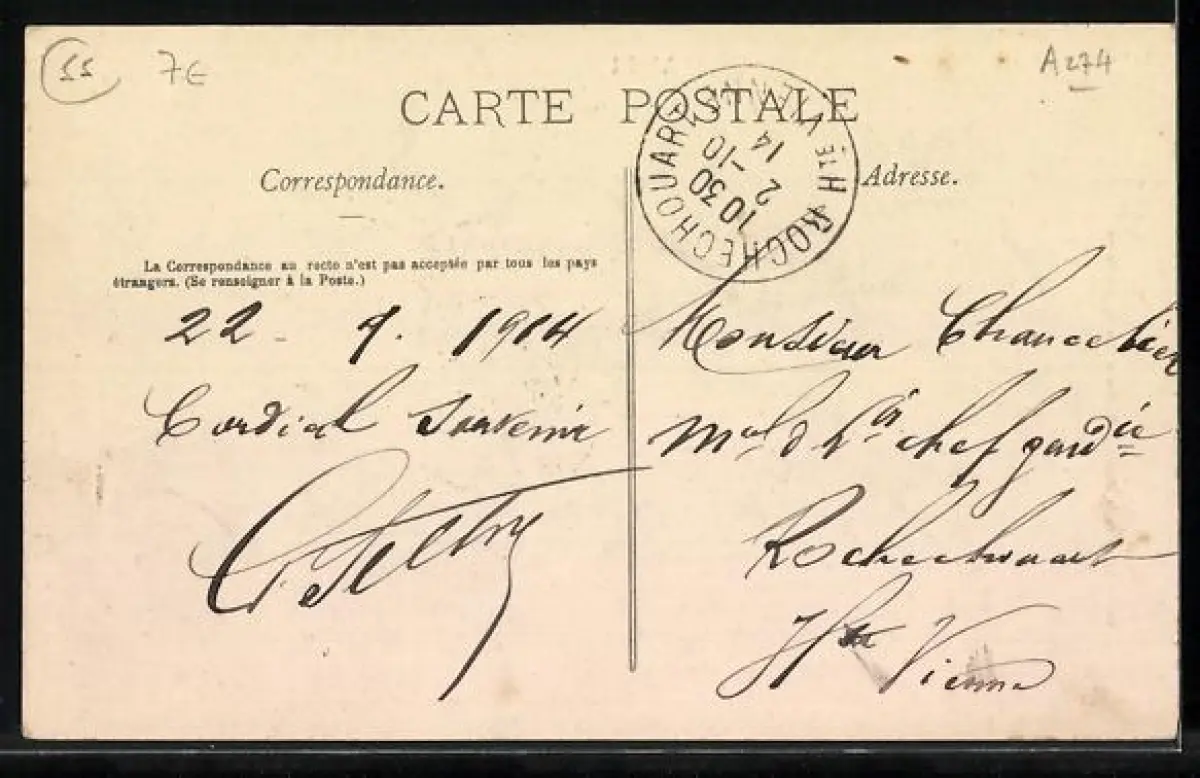 55
7€
A274
CARTE POSTALE
Correspondance.
Adresse.
ROCHECHOUART
HTE VIENNE
10 30
2 - 10
14
La Correspondance au recto n'est pas acceptée par tous les pays
étrangers. (Se renseigner à la Poste.)
22 - 9. 1914
Cordial Souvenir
Monsieur Chancelier
Mal d. Lis chef gendie
Rochechouart
Hte Vienne